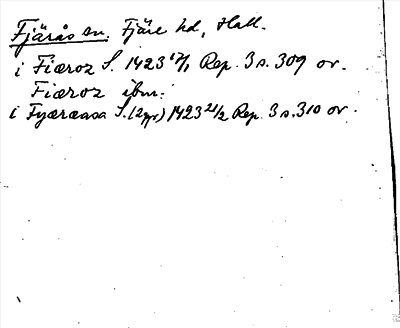 Fjärås sn. Fjäre hd, Hall.
i Fiæroz S. 1423 17/1 Rep. 3 s. 309 or.
Fiæroz ibm.
i Fyæræasa S. (2 gr) 1423 21/2 Rep. 3 s. 310 or.